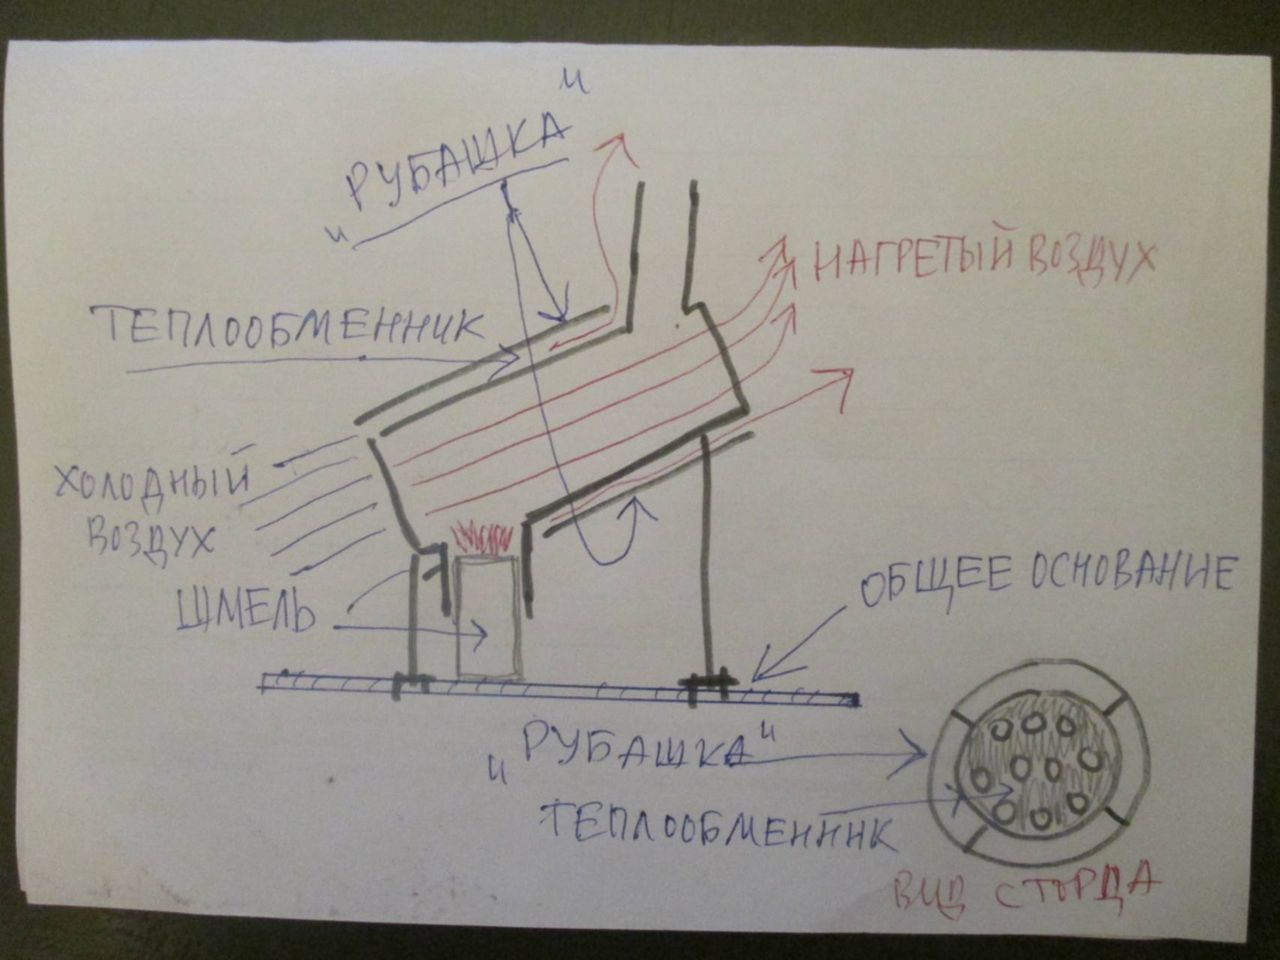 "РУБАШКА"
ТЕПЛООБМЕННИК
НАГРЕТЫЙ ВОЗДУХ
ХОЛОДНЫЙ
ВОЗДУХ
ШМЕЛЬ
ОБЩЕЕ ОСНОВАНИЕ
"РУБАШКА"
ТЕПЛООБМЕННИК
ВИД С ТОРЦА